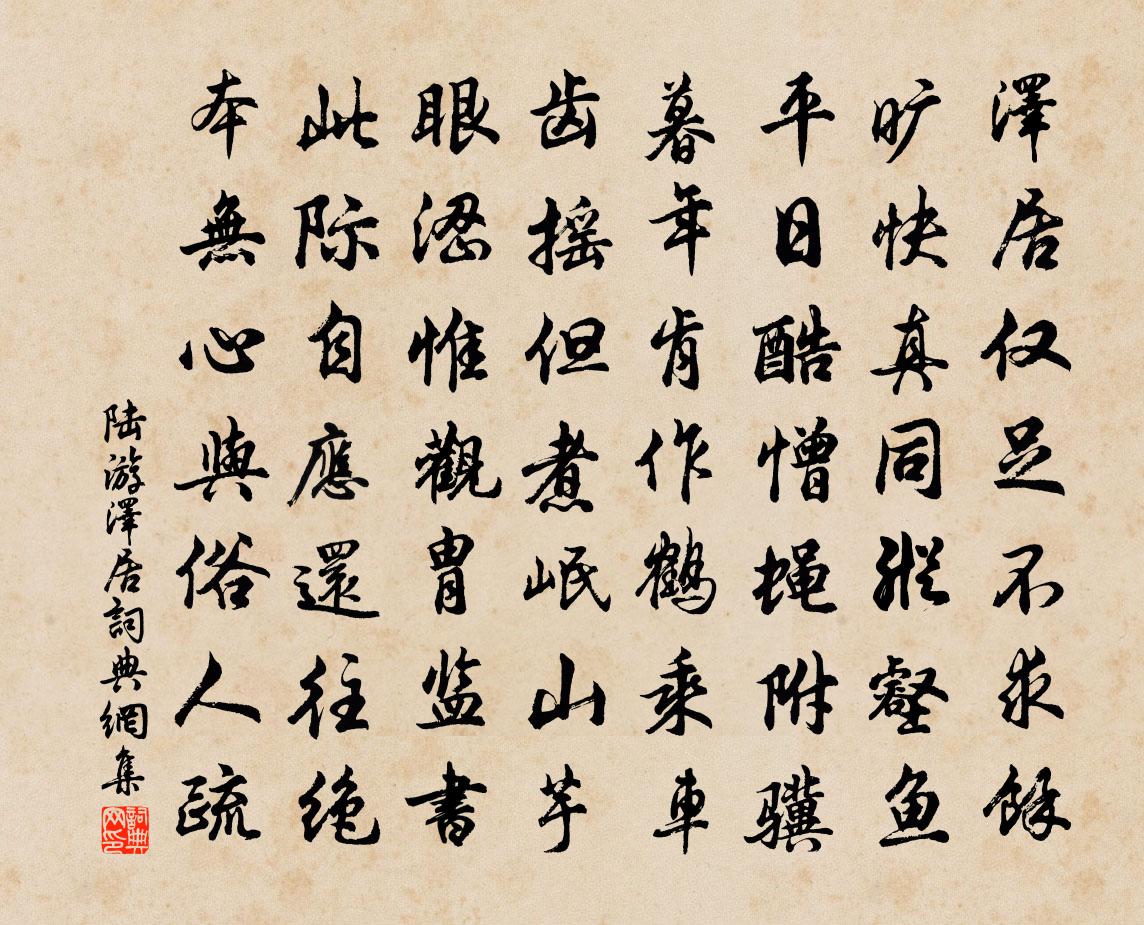 澤居仅足不求餘
旷快真同纵壑鱼
平日酷憎蝇附骥
暮年肯作鹤乘車
齿摇但煮岷山芋
眼涩惟觀胄监書
此际自應還往绝
本無心與俗人疏
陆游澤居詞典網集
詞典网印